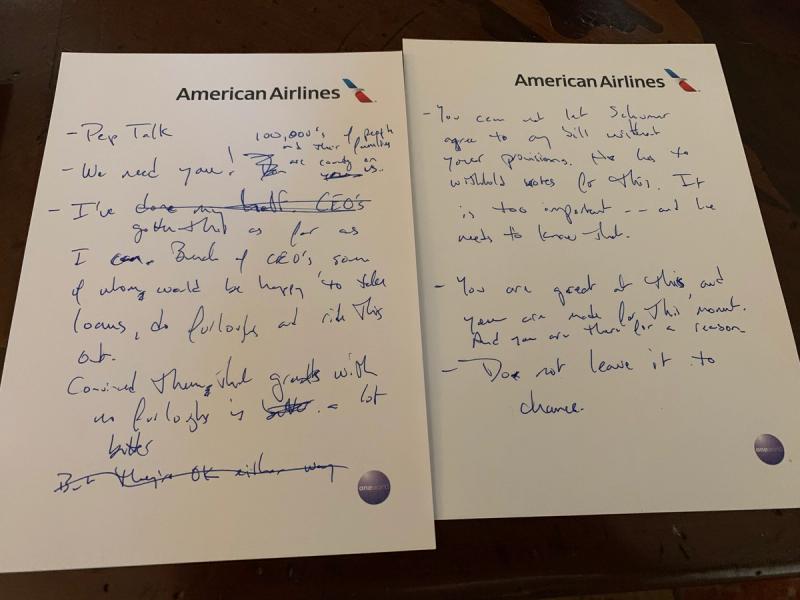 American Airlines
- Pep Talk
100,000's of people
and their families
are counting on
us..
- We need you!
- I've done my half. CEO's
gotten this as far as
I can. Bunch of CEO's some
of whom would be happy to take
loans, do furloughs and ride this
out.
Convinced them that grants with
no furloughs is a lot
better
But they're OK either way
oneworld
American Airlines
- You can not let Schumer
agree to any bill without
your provisions. He has to
withhold votes for this. It
is too important -- and he
needs to know that.
- You are great at this, and
you are made for this moment.
And you are there for a reason
- Do not leave it to
chance.
oneworld